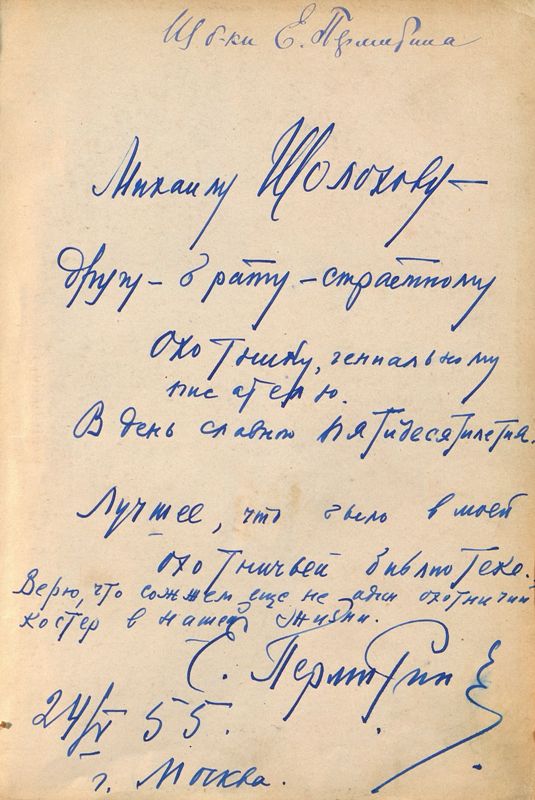 Из б-ки Е. Пермитина
Михаилу Шолохову —
другу — брату — страстному
Охотнику, гениальному
писателю.
В день славного пятидесятилетия.
Лучшее, что было в моей
охотничьей библиотеке.
Верю, что сожжем еще не один охотничий
костер в нашей жизни.
Е. Пермитин
24/V 55.
г. Москва.